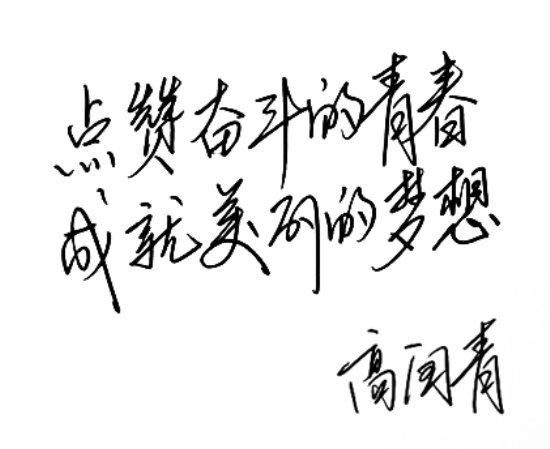 点赞奋斗的青春
成就美丽的梦想
高闰青